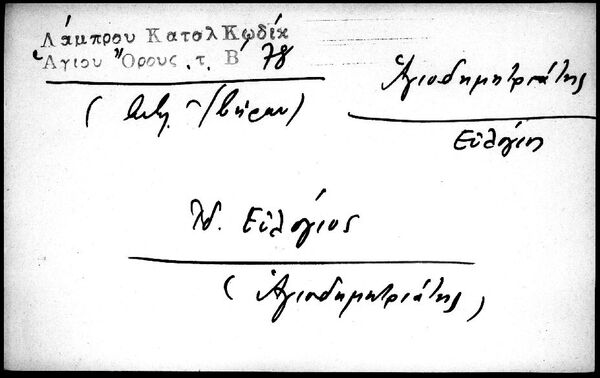 Λάμπρου Καταλ Κωδίκ
Ἁγίου Ὄρους .τ. Β΄ 78
Ἁγιοδημητριάτης
Εὐλόγιος
Ἰδ. Εὐλόγιος
(Ἁγιοδημητριάτης)